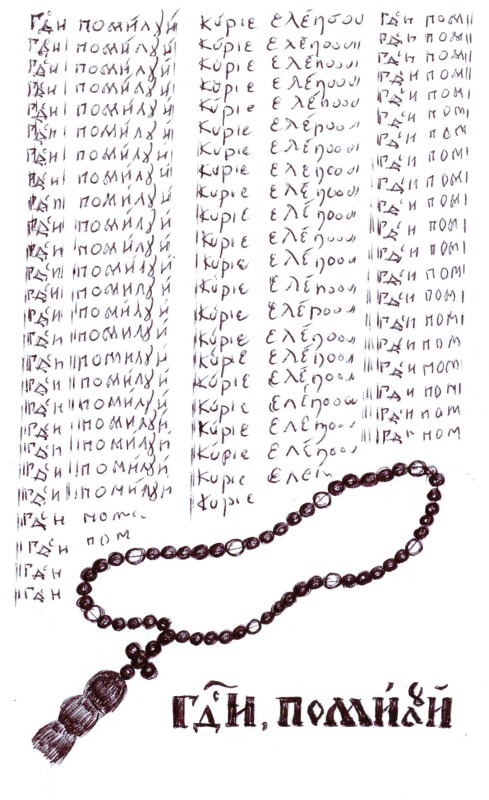 Гдⷭ҇и поми́лꙋй
Гдⷭ҇и поми́лꙋй
Гдⷭ҇и поми́лꙋй
Гдⷭ҇и поми́лꙋй
Гдⷭ҇и поми́лꙋй
Гдⷭ҇и поми́лꙋй
Гдⷭ҇и поми́лꙋй
Гдⷭ҇и поми́лꙋй
Гдⷭ҇и поми́лꙋй
Гдⷭ҇и поми́лꙋй
Гдⷭ҇и поми́лꙋй
Гдⷭ҇и поми́лꙋй
Гдⷭ҇и поми́лꙋй
Гдⷭ҇и поми́лꙋй
Гдⷭ҇и поми́лꙋй
Гдⷭ҇и поми́лꙋй
Гдⷭ҇и поми́лꙋй
Гдⷭ҇и поми́лꙋй
Гдⷭ҇и поми́лꙋй
Гдⷭ҇и поми́лꙋй
Гдⷭ҇и поми́лꙋй
Гдⷭ҇и поми́лꙋй
Гдⷭ҇и
Гдⷭ҇и пом
Гдⷭ҇и
Гдⷭ҇и
κύριε ελέησον
κύριε ελέησον
κύριε ελέησον
κύριε ελέησον
κύριε ελέησον
κύριε ελέησον
κύριε ελέησον
κύριε ελέησον
κύριε ελέησον
κύριε ελέησον
κύριε ελέησον
κύριε ελέησον
κύριε ελέησον
κύριε ελέησον
κύριε ελέησον
κύριε ελέησον
κύριε ελέησον
κύριε ελέησον
κύριε ελέησον
κύριε ελέησον
κύριε ελέη
κύριε
Гдⷭ҇и поми
Гдⷭ҇и поми
Гдⷭ҇и поми
Гдⷭ҇и поми
Гдⷭ҇и поми
Гдⷭ҇и пом
Гдⷭ҇и пом
Гдⷭ҇и пом
Гдⷭ҇и пом
Гдⷭ҇и пом
Гдⷭ҇и пом
Гдⷭ҇и пом
Гдⷭ҇и пом
Гдⷭ҇и пом
Гдⷭ҇и пом
Гдⷭ҇и пом
Гдⷭ҇и пом
Гдⷭ҇и пом
Гдⷭ҇и пом
Гдⷭ҇и пом
Гдⷭ҇и, поми́лꙋй